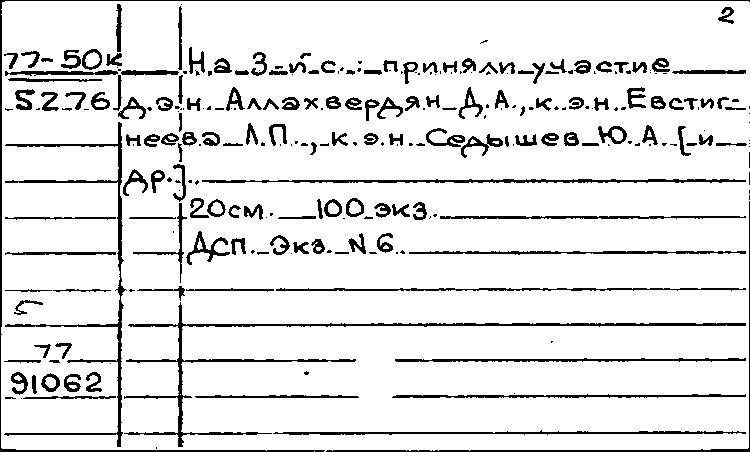 2
77-50к На 3-й с.: приняли участие
5276 д.э.н. Аллахвердян Д.А., к.э.н. Евстиг-
неева Л.П., к.э.н. Седышев Ю.А. [и
др.].
20см. 100 экз.
ДСП. Экз. N 6.
77
91062